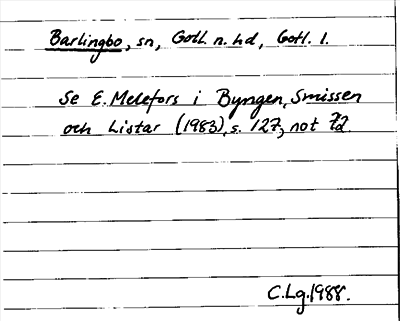 Barlingbo, sn, Gotl. n. hd, Gotl. l.
Se E. Melefors i Byngen, Smissen
och Listar (1983), s. 127, not 72.
C.Lg. 1988.